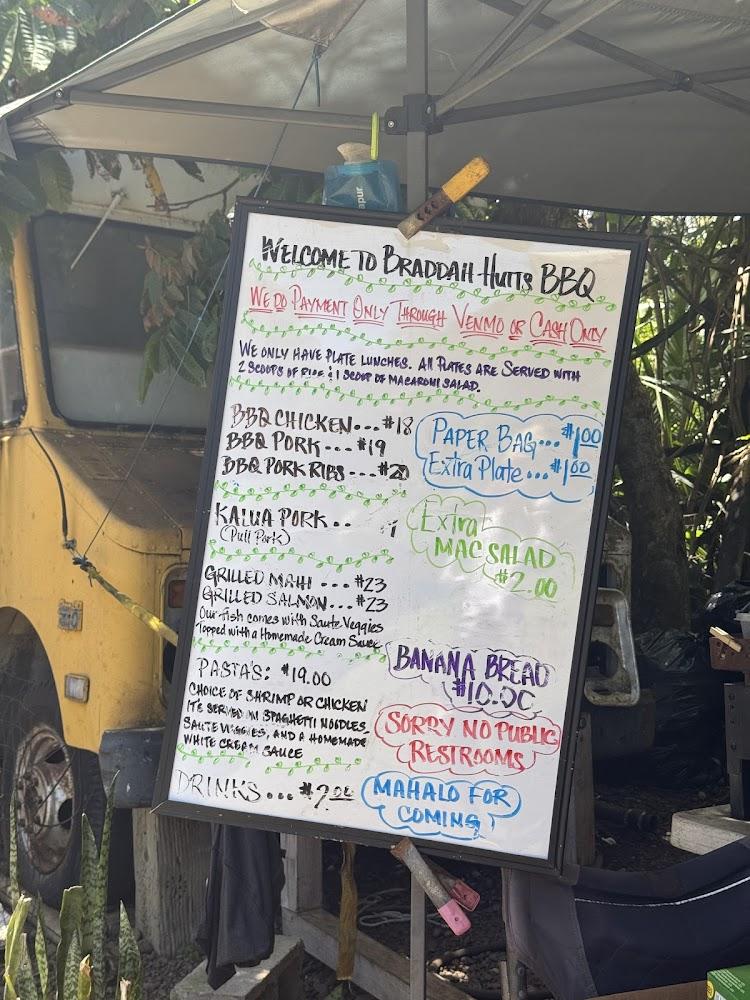 apur
WELCOME TO BRADDAH HUTTS BBQ
WE DO PAYMENT ONLY THROUGH VENMO OR CASH ONLY
WE ONLY HAVE PLATE LUNCHES. All PLATES ARE SERVED WITH
2 SCOOPS OF RICE & 1 SCOOP OF MACARONI SALAD.
BBQ CHICKEN...$18
BBQ PORK...$19
BBQ PORK RIBS...$20
PAPER BAG...$1.00
Extra Plate...$1.00
KALUA PORK..
(Pull Pork)
Extra
MAC SALAD
$2.00
GRILLED MAHI...$23
GRILLED SALMON...$23
Our Fish comes with Saute Veggies
Topped with a Homemade Cream Sauce
PASTA'S: $19.00
CHOICE OF SHRIMP OR CHICKEN
IT'S SERVED IN SPAGHETTI NOODLES,
SAUTE VEGGIES, AND A HOMEMADE
WHITE CREAM SAUCE
BANANA BREAD
$10.00
SORRY NO PUBLIC
RESTROOMS
DRINKS...
MAHALO FOR
COMING!